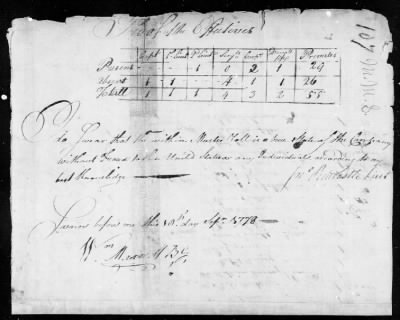 of the Effectives
Capt 1 Lieut 2 Lieut Serjts Corpl Drum & fife Privates
Present 1 2 1 29
Absent 1 1 4 1 1 26
Totall 1 1 1 4 3 2 55
I Swear that the within Muster Roll is a true State of the Company
without fraud to the United States or any Individual according to my
best Knowledge
Sworn before me this 10th day Sept 1778
Wm B G